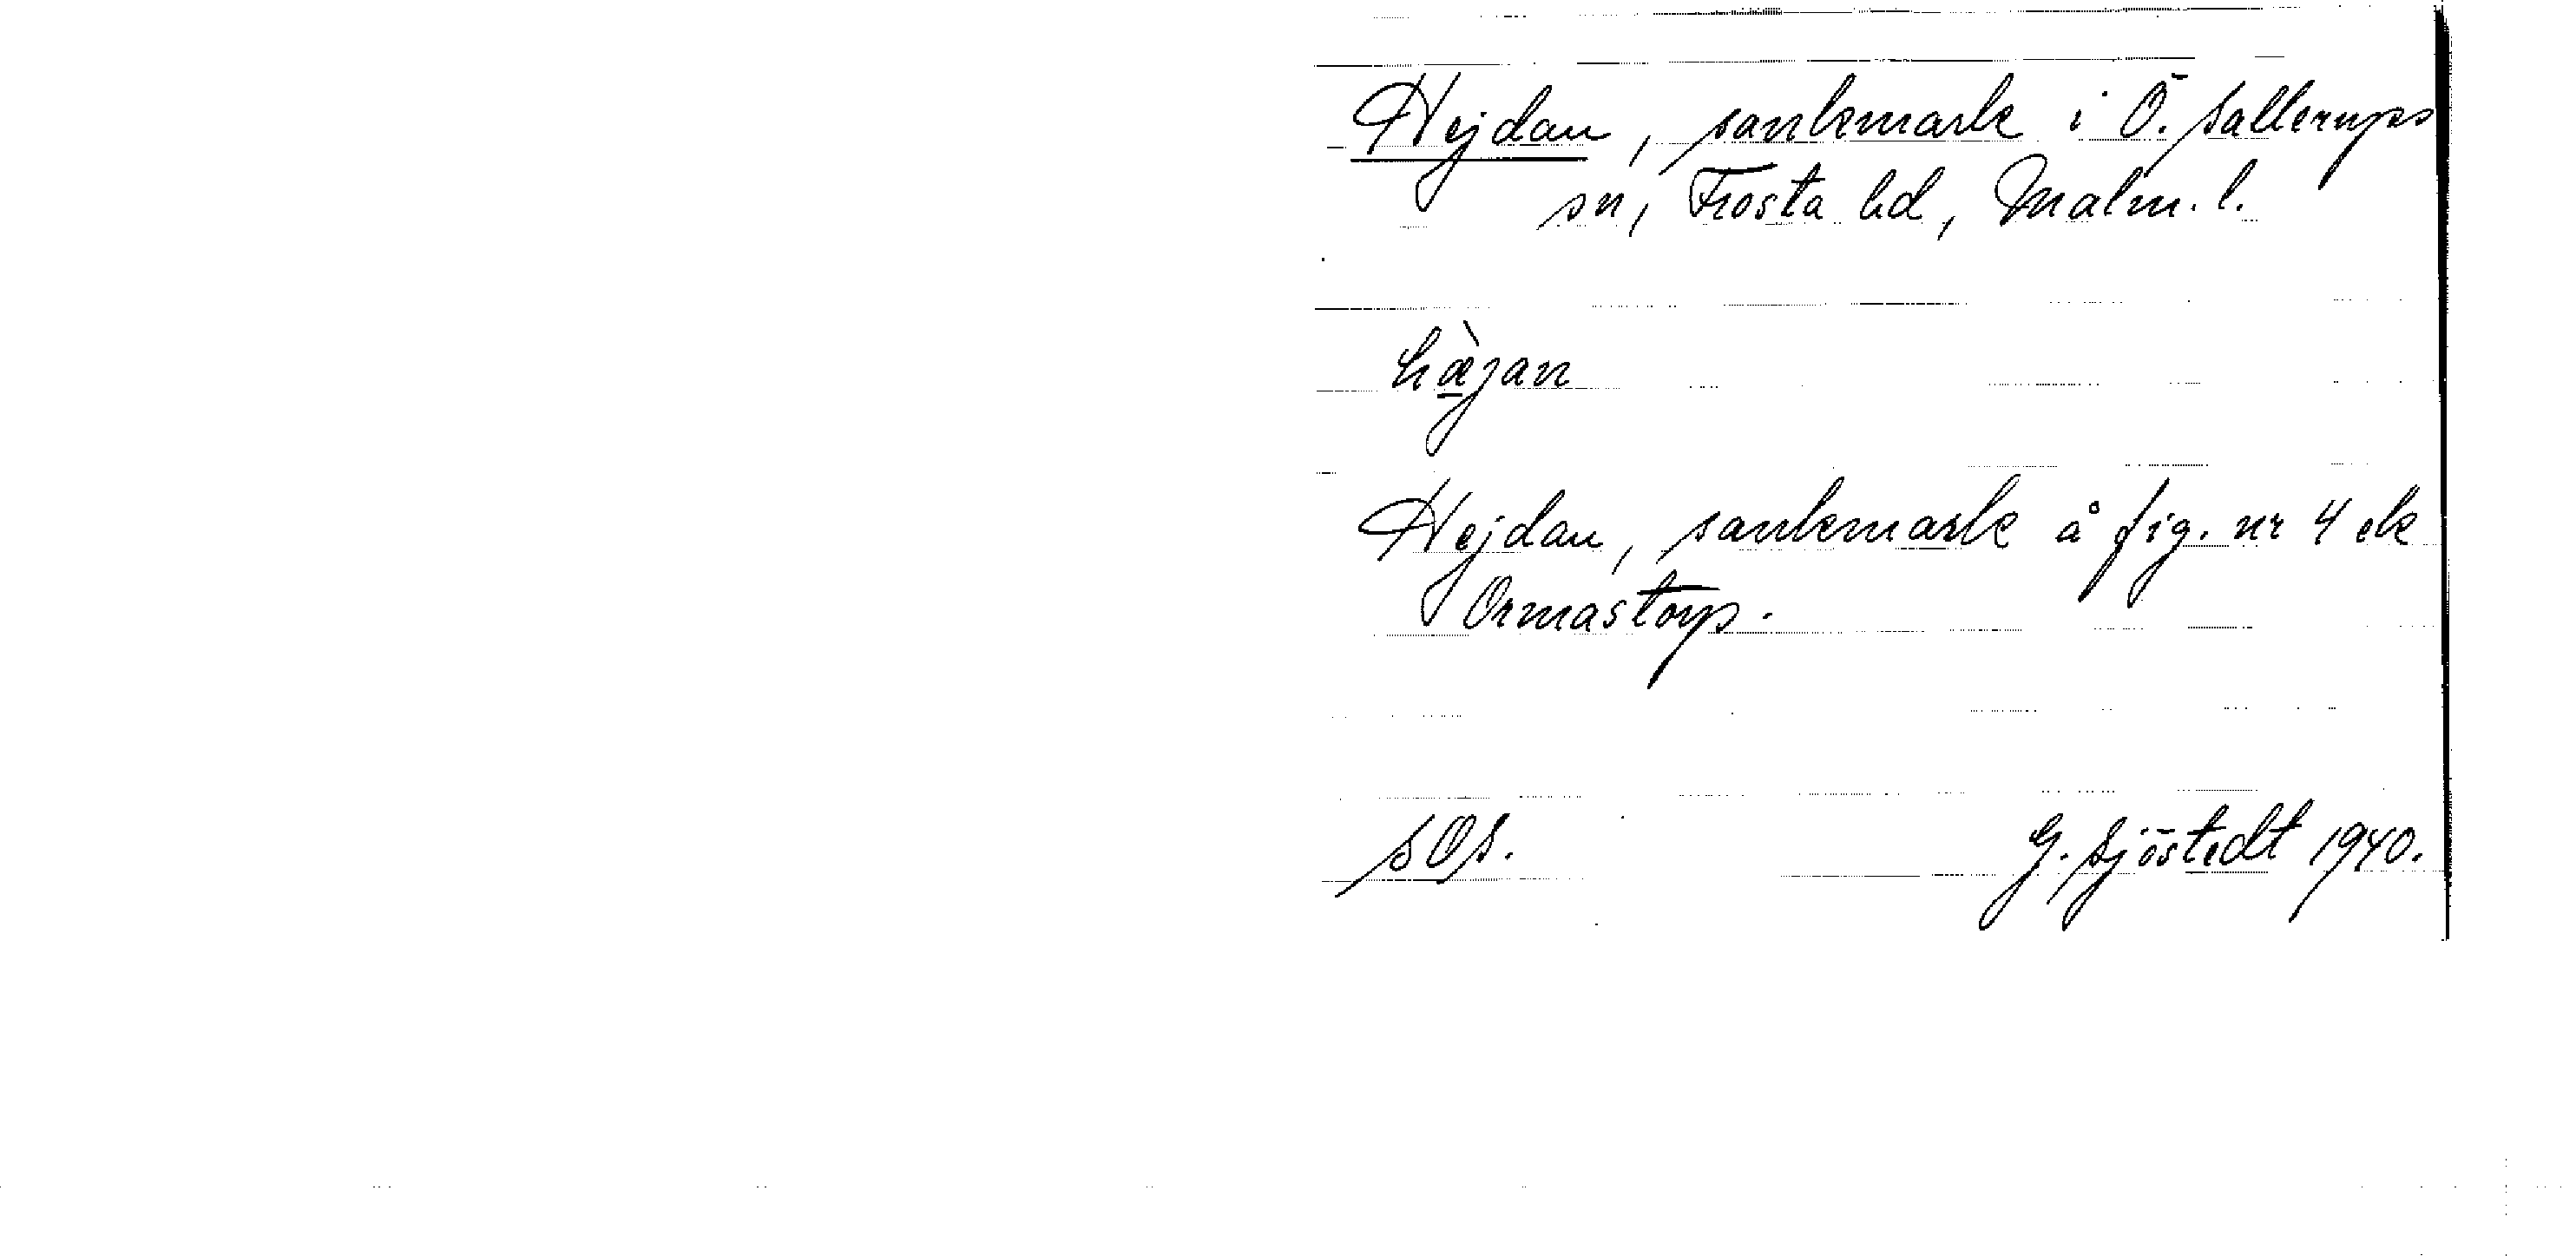 Hejdan, sankmark i Ö. Sallerups
sn, Frosta hd, Malm. l.
hæ̀jan
Hejdan, sankmark å fig. nr 4 ek
Ormastorp.
SOS.
G. Sjöstedt 1940.